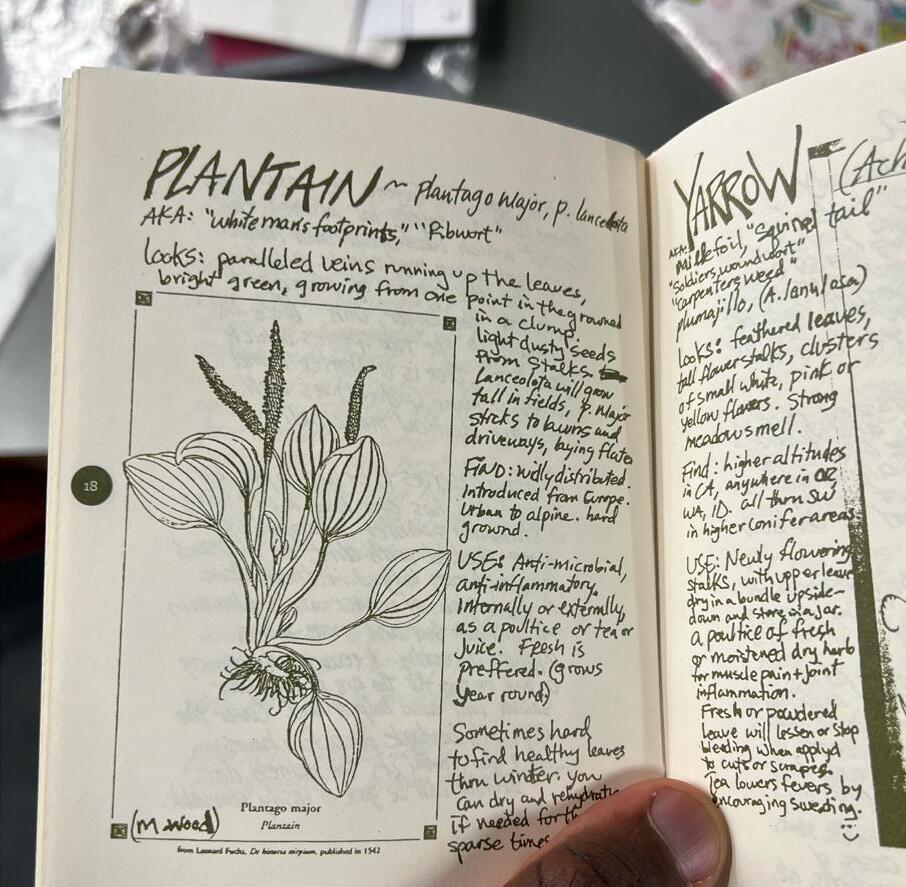 PLANTAIN ~ plantago major, p. lanceolota
AKA: "white man's footprints," "Ribwort"
Looks: paralleled veins running up the leaves,
bright green, growing from one point in the ground
in a clump.
light dusty seeds
from stalks.
Lanceolota will grow
tall in fields, p. major
sticks to lawns and
driveways, laying flat
FIND: widly distributed.
Introduced from Europe.
Urban to alpine. hard
ground.
USE: Anti-microbial,
anti-inflammatory.
Internally or externally,
as a poultice or tea or
juice. Fresh is
preffered. (grows
year round)
Sometimes hard
to find healthy leaves
thru winter. you
can dry and rehydrate
if needed for th
sparse times
18
Plantago major
Plantain
(M wood)
from Leonard Fuchs, De historia stirpium, published in 1542
YARROW (Ach
AKA: Millefoil, "squirrel tail"
"soldiers woundwort"
"carpenters weed"
plumajillo, (A. lanulasa)
Looks: feathered leaves,
tall flower stalks, clusters
of small white, pink or
yellow flowers. Strong
meadow smell.
Find: higher altitudes
in CA, anywhere in OR
WA, ID. all thru SW
in higher conifer areas
USE: Newly flowering
stalks, with upper leave
dry in a bundle upside-
down and store in a jar.
a poultice of fresh
or moistened dry herb
for muscle pain + joint
inflammation.
Fresh or powdered
leave will lessen or stop
bleeding when applyd
to cuts or scrapes.
Tea lowers fevers by
encouraging sweating.